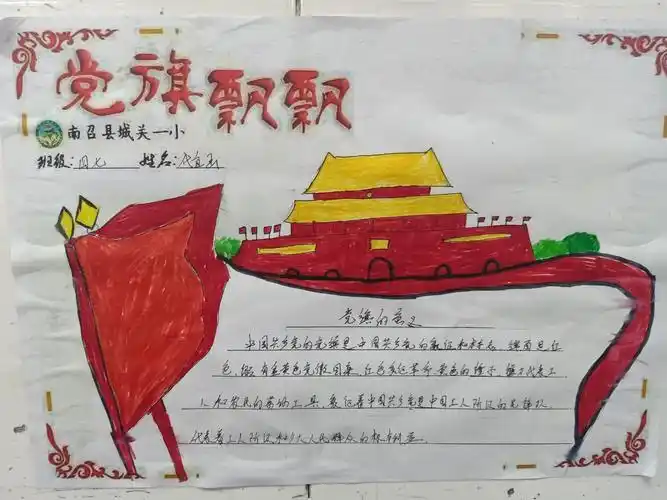 党旗飘飘
南召县城关一小
班级：四七 姓名：
党旗的意义
中国共产党的党旗是中国共产党的象征和标志，旗面是红
色，缀有金黄色党徽图案，红色象征革命，黄色的锤子、镰刀代表工
人和农民的劳动工具，象征着中国共产党是中国工人阶级的先锋队，
代表着工人阶级和广大人民群众的根本利益。